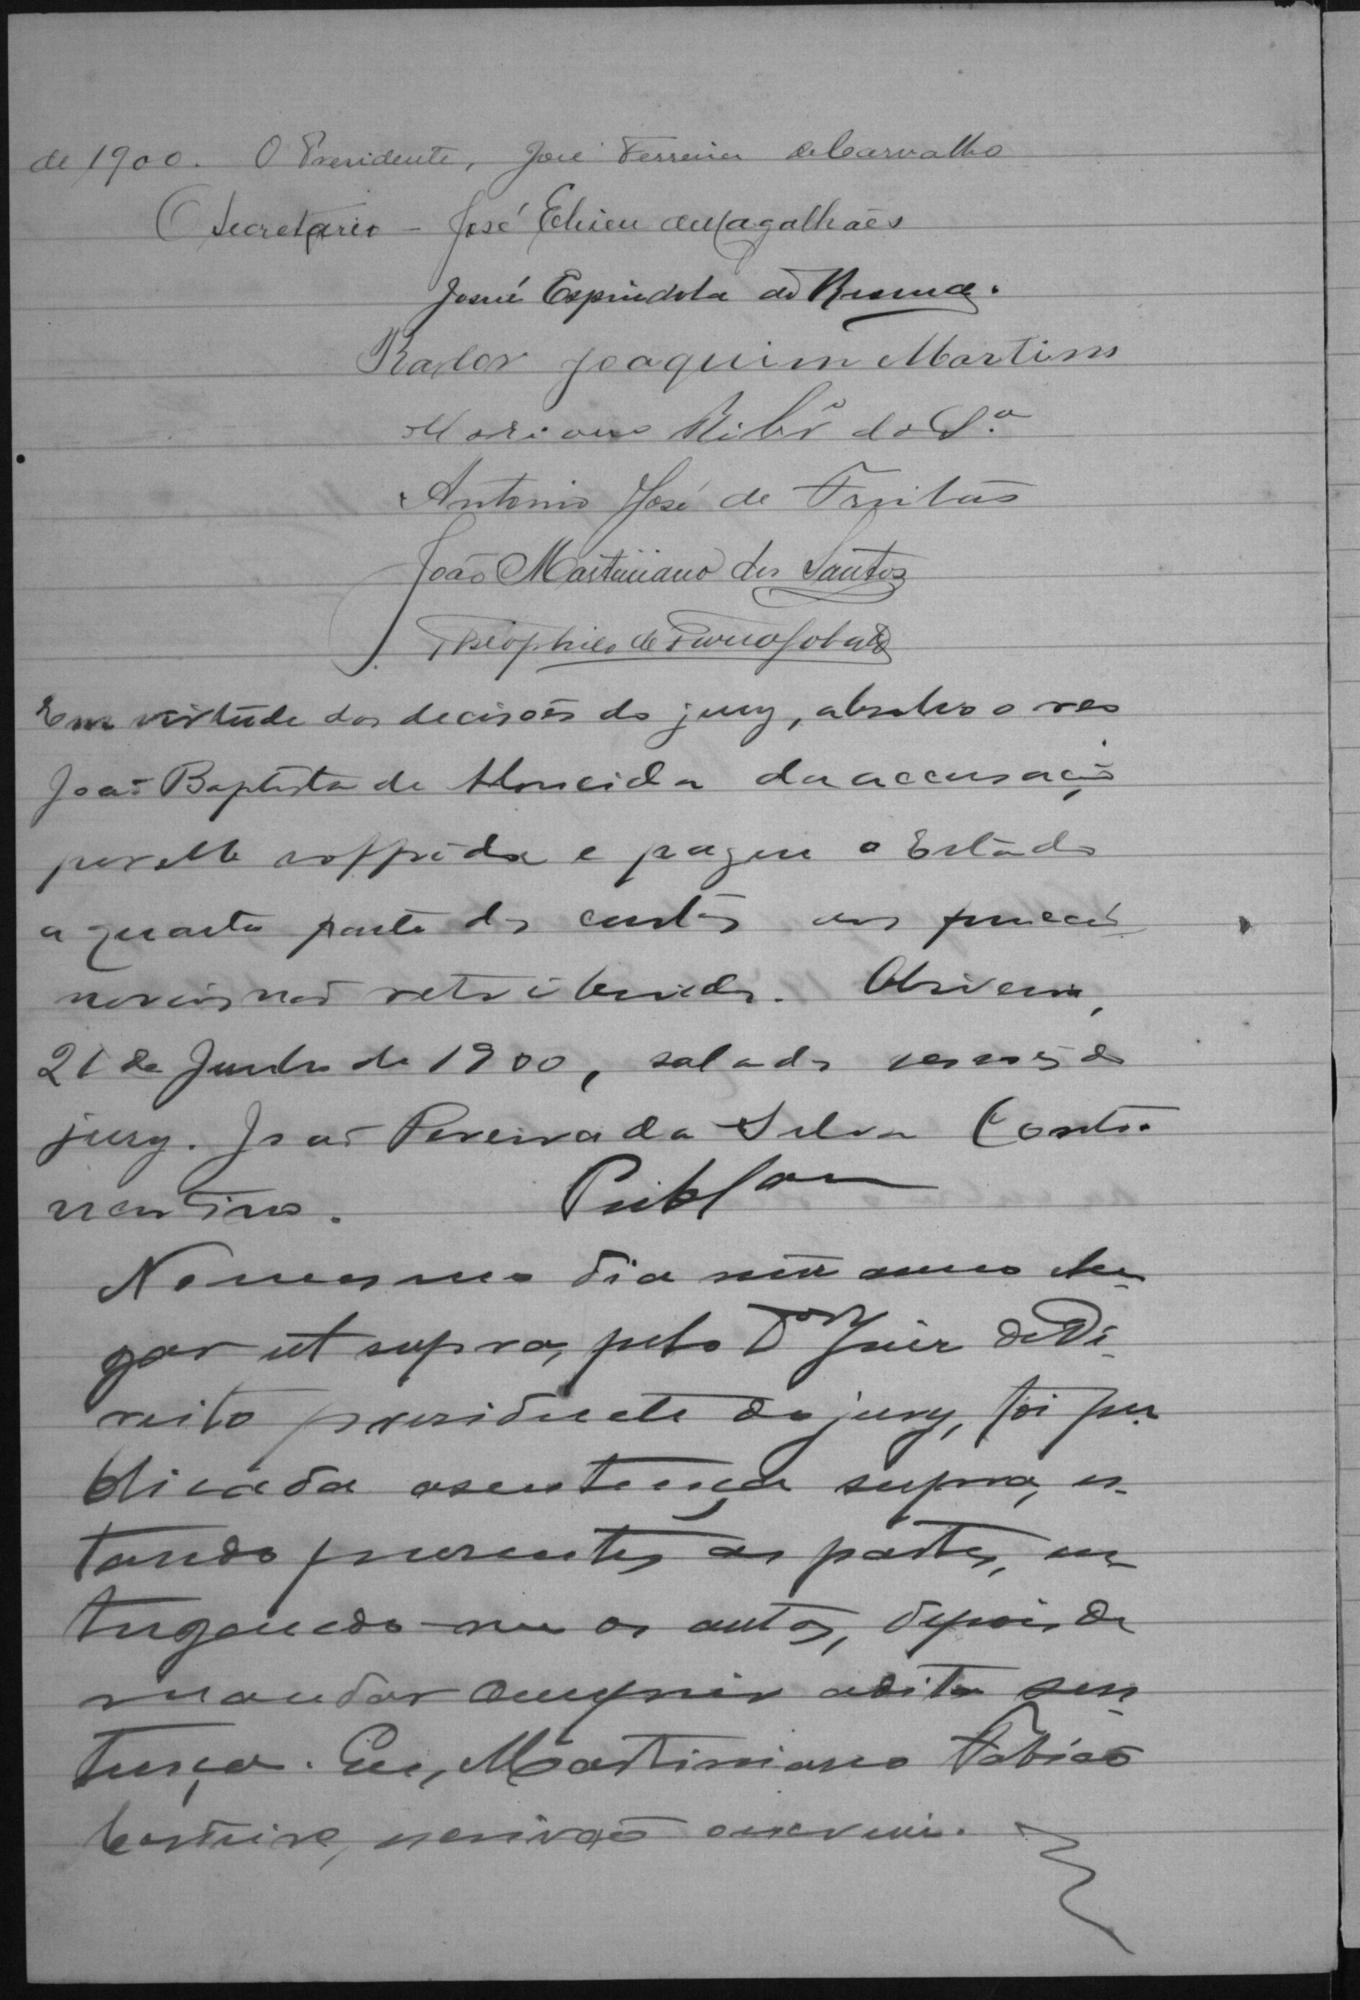 de 1900. O Presidente, José Ferreira de Carvalho
O Secretario - José Eliseu de Magalhães
Josué Espindola de
Joaquim Martins
Mariano Ribr.º da S.ª
Antonio José de Freitas
João Martiniano dos Santos
Theophilo de
Em virtude das decisões do jury, absolvo o reo
João Baptista de Almeida da accusação
por elle soffrida e pague o Estado
a quarta parte das custas aos funccio
narios não retribuidos. Oliveira,
21 de Junho de 1900, sala das sessões do
jury. João Pereira da Silva Conti-
nentino.
Publ.am
No mesmo dia mez anno e lu-
gar ut supra, pelo Dor Juiz de Di-
reito presidente do jury, foi pu-
blicada a sentença supra, es-
tando presentes as partes, en-
tregando-me os autos, depois de
mandar cumprir a dita sen-
tença. Eu, Martiniano Fabião
escrivão o escrevi.